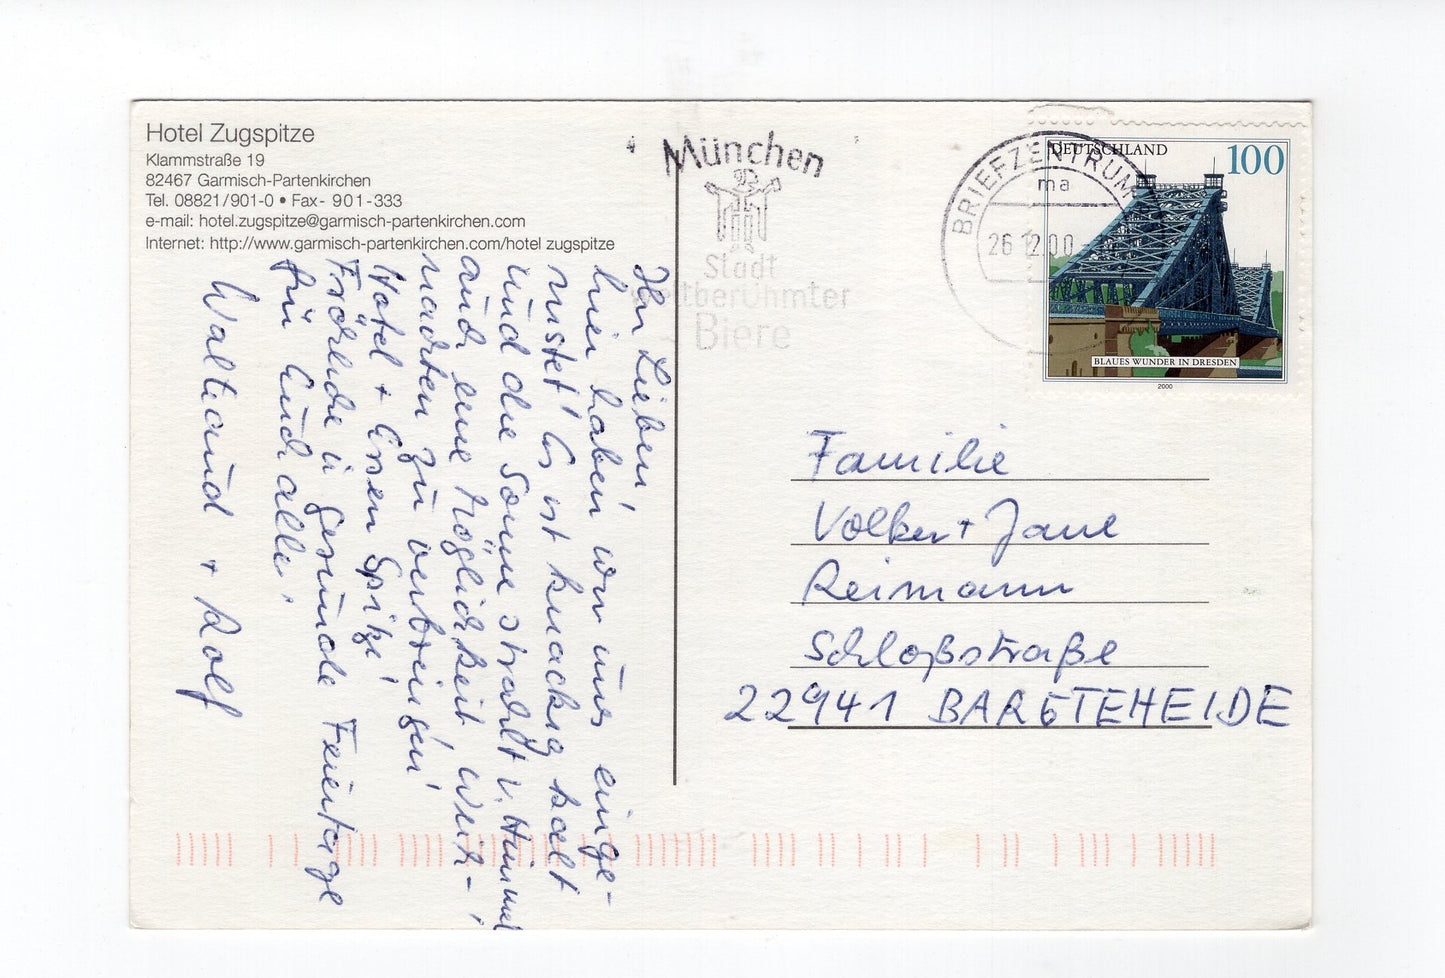 Hotel Zugspitze
Klammstraße 19
82467 Garmisch-Partenkirchen
Tel. 08821/901-0 • Fax- 901-333
e-mail: hotel.zugspitze@garmisch-partenkirchen.com
Internet: http://www.garmisch-partenkirchen.com/hotel zugspitze
Ihr Lieben!
hier haben wir uns einge-
nistet! Es ist knackig kalt
und die Sonne strahlt v. Himmel
und eine Möglichkeit Weih-
nachten zu verbringen!
Hotel + Essen Spitze!
Fröhliche u gesunde Feiertage
für Euch alle!
Waltraud + Rolf
München
Stadt
weltberühmter
Biere
BRIEFZENTRUM
ma
26.12.00
DEUTSCHLAND
100
BLAUES WUNDER IN DRESDEN
2000
Familie
Volker + Jane
Reimann
Schloßstraße
22941 BARGTEHEIDE